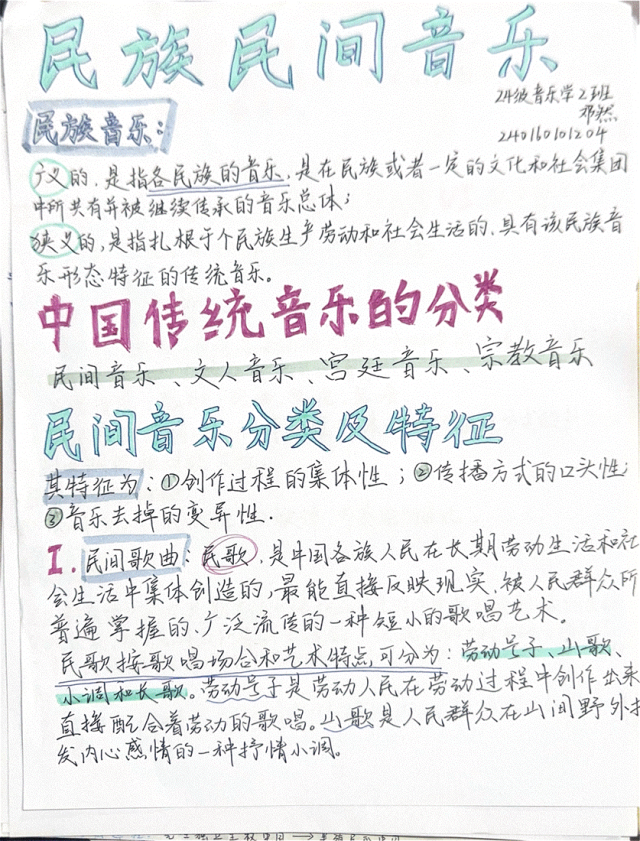 民族民间音乐
24级音乐学2班
邓然
240160101204
民族音乐：
广义的，是指各民族的音乐，是在民族或者一定的文化和社会集团
中所共有并被继续传承的音乐总体；
狭义的，是指扎根于个民族生产劳动和社会生活的，具有该民族音
乐形态特征的传统音乐。
中国传统音乐的分类
民间音乐、文人音乐、宫廷音乐、宗教音乐
民间音乐分类及特征
其特征为：①创作过程的集体性；②传播方式的口头性；
③音乐去掉的变异性．
I．民间歌曲：民歌，是中国各族人民在长期劳动生活和社
会生活中集体创造的，最能直接反映现实，被人民群众所
普遍掌握的、广泛流传的一种短小的歌唱艺术。
民歌按歌唱场合和艺术特点可分为：劳动号子、山歌、
小调和长歌。劳动号子是劳动人民在劳动过程中创作出来
直接配合着劳动的歌唱。山歌是人民群众在山间野外抒
发内心感情的一种抒情小调。